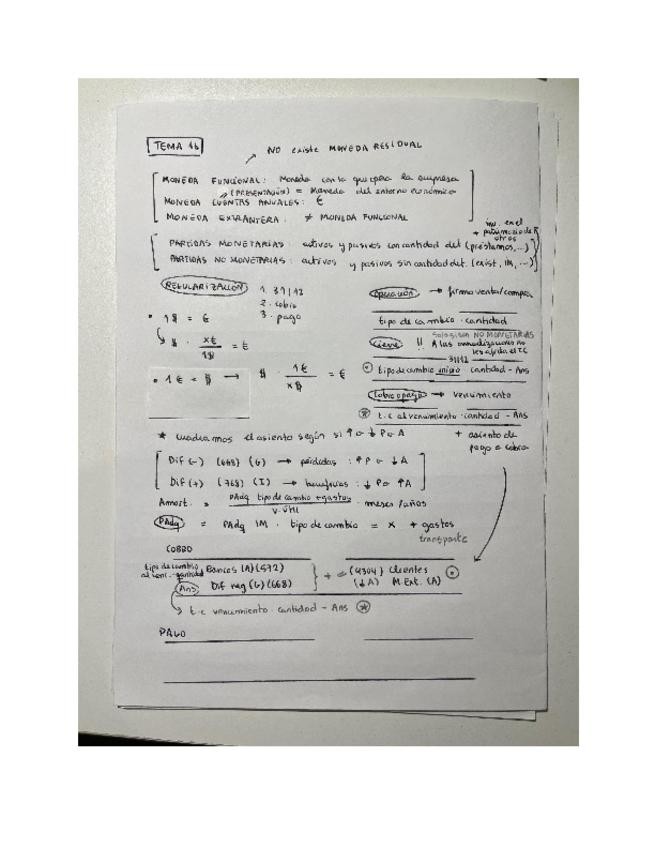 TEMA 16
NO existe MONEDA RESIDUAL
MONEDA FUNCIONAL: Moneda con la que opera la empresa
(PRESENTACIÓN) = Moneda del entorno económico
MONEDA CUENTAS ANUALES: €
MONEDA EXTRANJERA: ≠ MONEDA FUNCIONAL
inv. en el
+ patrimonio de
otros
PARTIDAS MONETARIAS activos y pasivos con cantidad det (préstamos,...)
PARTIDAS NO MONETARIAS: activos y pasivos sin cantidad det. (exist, IM, ...)
REGULARIZACIÓN
1. 31/12
2. cobro
3. pago
• 1$ = €
$ · x€/1$ = €
• 1€ = $ → $ · 1€/x$ = €
Operación → firma venta/compra
tipo de cambio · cantidad
Solo si son NO MONETARIAS
Cierre !! A las amortizaciones no
les afecta el TC
31/12
tipo de cambio inicio · cantidad - Ans
Cobro o pago → vencimiento
* t.c al vencimiento · cantidad - Ans
+ asiento de
pago o cobro
* cuadramos el asiento según si ↑ o ↓ P o A
Dif (-) (668) (G) → pérdidas : ↑ P o ↓ A
Dif (+) (768) (I) → beneficios : ↓ P o ↑ A
Amort. = PAdq · tipo de cambio + gastos / V.útil · meses/años
PAdq = PAdq IM · tipo de cambio = x + gastos
transporte
COBRO
tipo de cambio
al venc. · cantidad
Bancos (A) (572)
Ans Dif neg (G) (668)
+ = (4304) Clientes
(↓A) M.Ext. (A)
t.c vencimiento · cantidad - Ans *
PAGO